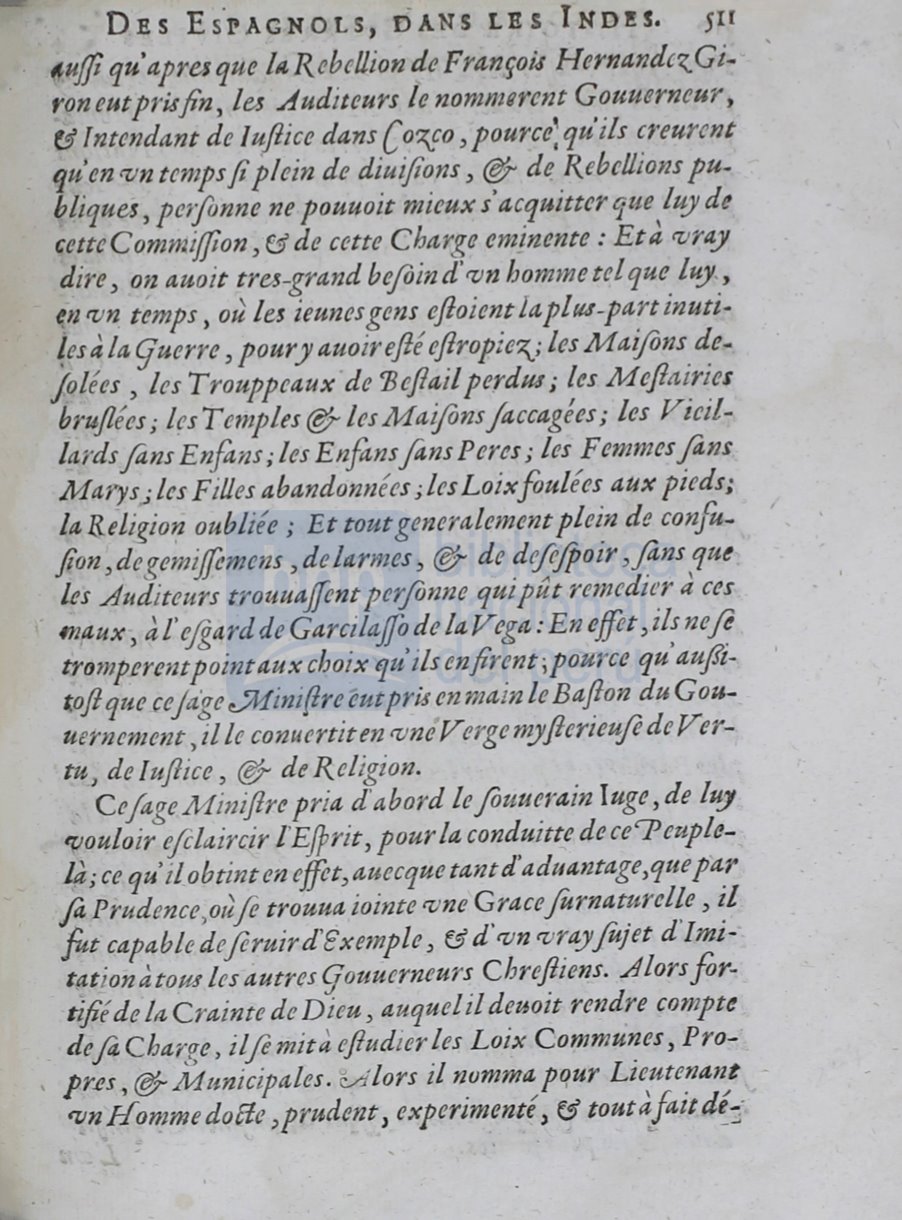 DES ESPAGNOLS, DANS LES INDES. 511
auſſi qu'apres que la Rebellion de François Hernandez Gi-
ron eut pris fin, les Auditeurs le nommerent Gouuerneur,
& Intendant de Iuſtice dans Cozco, pource qu'ils creurent
qu'en vn temps ſi plein de diuiſions, & de Rebellions pu-
bliques, perſonne ne pouuoit mieux s'acquitter que luy de
cette Commiſſion, & de cette Charge eminente : Et à vray
dire, on auoit tres-grand beſoin d'vn homme tel que luy,
en vn temps, où les ieunes gens eſtoient la plus-part inuti-
les à la Guerre, pour y auoir eſté eſtropiez; les Maiſons de-
ſolées, les Trouppeaux de Beſtail perdus; les Meſtairies
bruſlées; les Temples & les Maiſons ſaccagées; les Vieil-
lards ſans Enfans; les Enfans ſans Peres; les Femmes ſans
Marys; les Filles abandonnées; les Loix foulées aux pieds;
la Religion oubliée; Et tout generalement plein de confu-
ſion, de gemiſſemens, de larmes, & de deſeſpoir, ſans que
les Auditeurs trouuaſſent perſonne qui pût remedier à ces
maux, à l'eſgard de Garcilaſſo de la Vega : En effet, ils ne ſe
tromperent point aux choix qu'ils en firent; pource qu'auſſi-
toſt que ce ſage Miniſtre eut pris en main le Baſton du Gou-
uernement, il le conuertit en vne Verge myſterieuſe de Ver-
tu, de Iuſtice, & de Religion.
Ce ſage Miniſtre pria d'abord le ſouuerain Iuge, de luy
vouloir eſclaircir l'Eſprit, pour la conduitte de ce Peuple-
là; ce qu'il obtint en effet, auecque tant d'aduantage, que par
ſa Prudence, où ſe trouua iointe vne Grace ſurnaturelle, il
fut capable de ſeruir d'Exemple, & d'vn vray ſujet d'Imi-
tation à tous les autres Gouuerneurs Chreſtiens. Alors for-
tifié de la Crainte de Dieu, auquel il deuoit rendre compte
de ſa Charge, il ſe mit à eſtudier les Loix Communes, Pro-
pres, & Municipales. Alors il nomma pour Lieutenant
vn Homme docte, prudent, experimenté, & tout à fait dé-
biblioteca
nacional
del perú